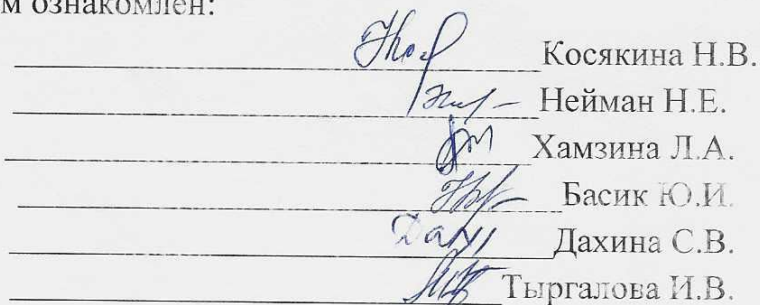 м ознакомлен:
Косякина Н.В.
Нейман Н.Е.
Хамзина Л.А.
Басик Ю.И.
Дахина С.В.
Тыргалова И.В.